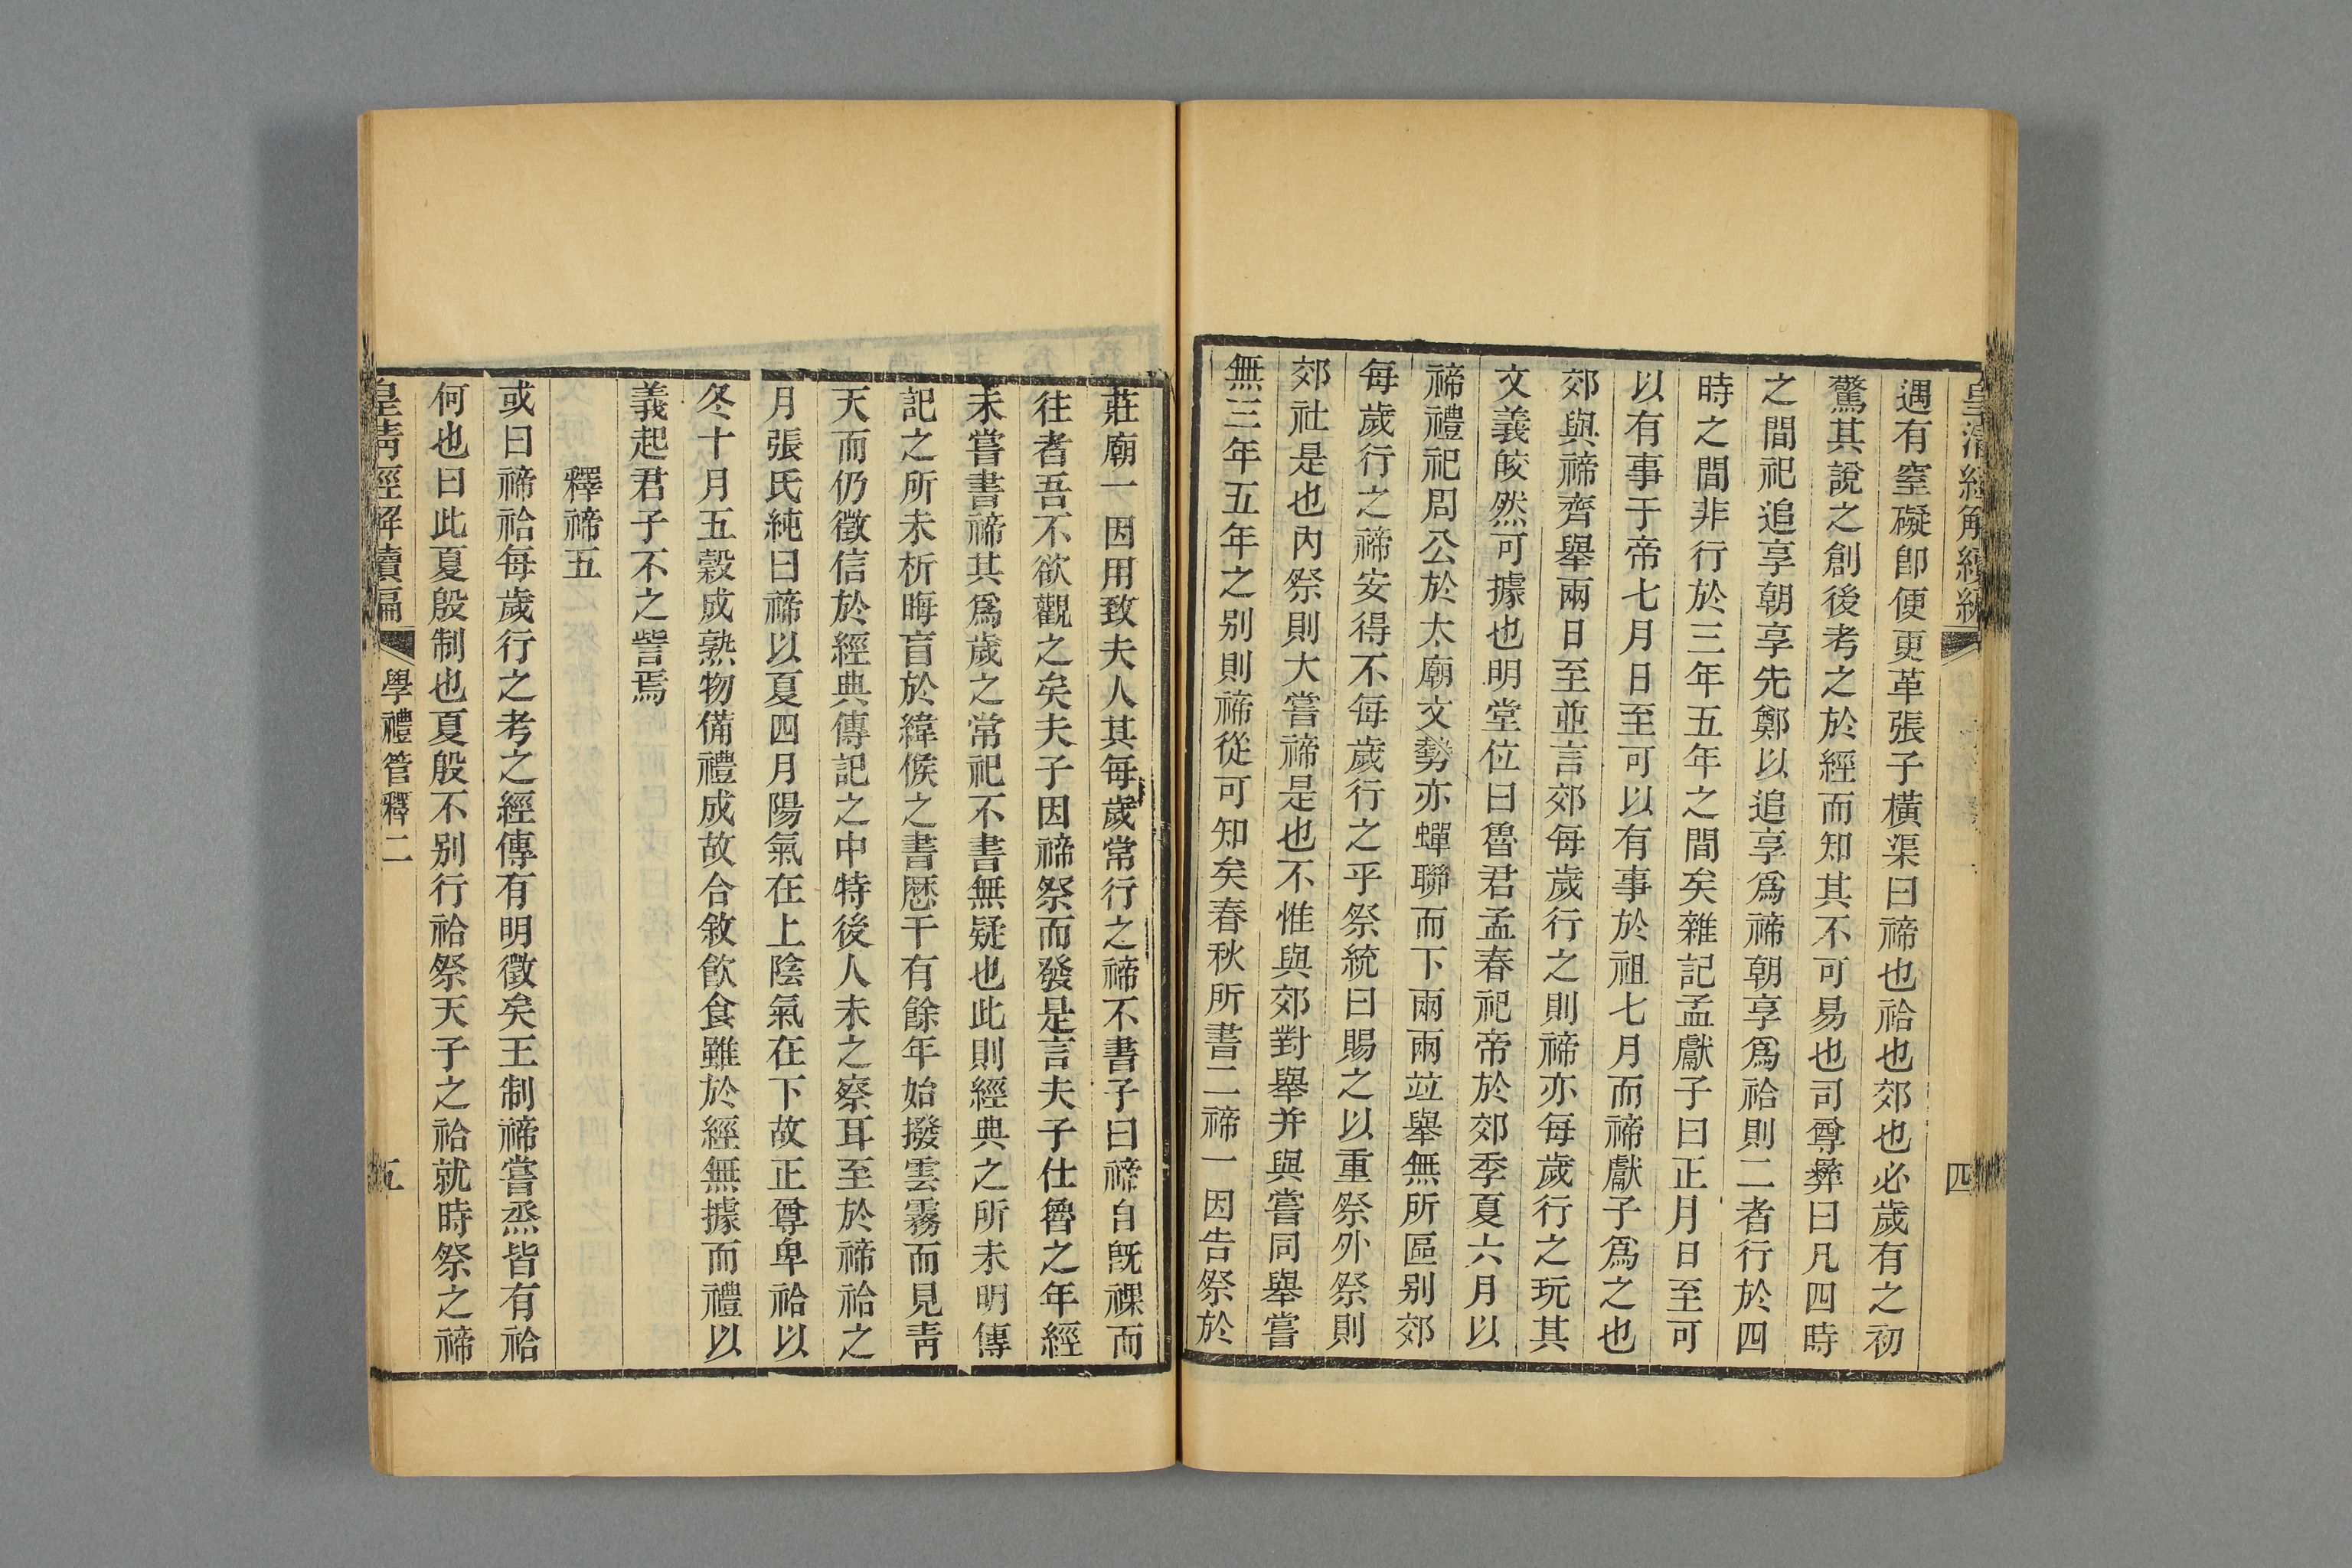 皇清經解續編
四
遇有窒礙卽便更革張子橫渠曰禘也祫也郊也必歲有之初
驚其說之創後考之於經而知其不可易也司尊彝曰凡四時
之間祀追享朝享先鄭以追享爲禘朝享爲祫則二者行於四
時之間非行於三年五年之間矣雜記孟獻子曰正月日至可
以有事于帝七月日至可以有事於祖七月而禘獻子爲之也
郊與禘齊舉兩日至並言郊每歲行之則禘亦每歲行之玩其
文義皎然可據也明堂位曰魯君孟春祀帝於郊季夏六月以
禘禮祀周公於太廟文勢亦蟬聯而下兩兩竝舉無所區別郊
每歲行之禘安得不每歲行之乎祭統曰賜之以重祭外祭則
郊社是也內祭則大嘗禘是也不惟與郊對舉并與嘗同舉嘗
無三年五年之別則禘從可知矣春秋所書二禘一因告祭於
莊廟一因用致夫人其每歲常行之禘不書子曰禘自旣祼而
往者吾不欲觀之矣夫子因禘祭而發是言夫子仕魯之年經
未嘗書禘其爲歲之常祀不書無疑也此則經典之所未明傳
記之所未析晦盲於緯候之書歷千有餘年始撥雲霧而見靑
天而仍徵信於經典傳記之中特後人未之察耳至於禘祫之
月張氏純曰禘以夏四月陽氣在上陰氣在下故正尊卑祫以
冬十月五穀成熟物備禮成故合敘飮食雖於經無據而禮以
義起君子不之訾焉
釋禘五
或曰禘祫每歲行之考之經傳有明徵矣王制禘嘗烝皆有祫
何也曰此夏殷制也夏殷不別行祫祭天子之祫就時祭之禘
皇清經解續編
學禮管釋二
五